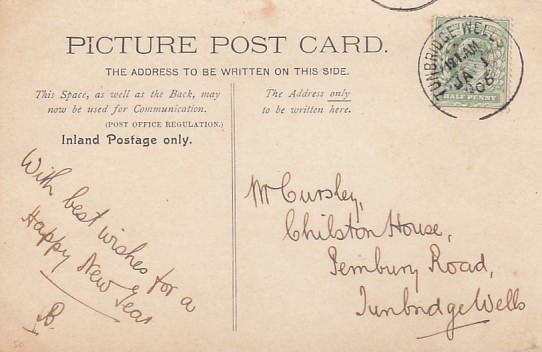 PICTURE POST CARD.
THE ADDRESS TO BE WRITTEN ON THIS SIDE.
This Space, as well as the Back, may
now be used for Communication.
(POST OFFICE REGULATION.)
Inland Postage only.
The Address only
to be written here.
TUNBRIDGE WELLS
JA 1
HALF PENNY
With best wishes for a
Happy New Year
Mr Cursley,
Chilston House,
Pembury Road,
Tunbridge Wells
50